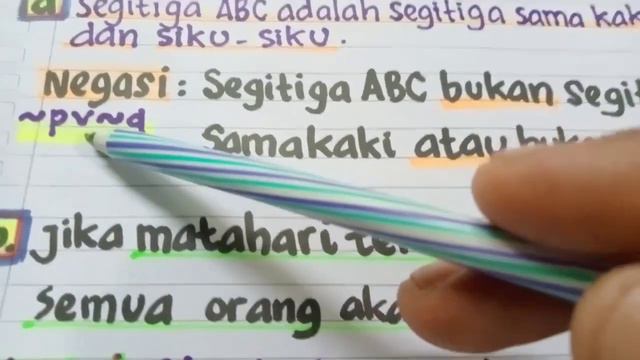 a Segitiga ABC adalah segitiga sama
dan siku-siku.
Negasi : Segitiga ABC bukan
~pv~q
Samakaki atau
Jika matahari
semua orang